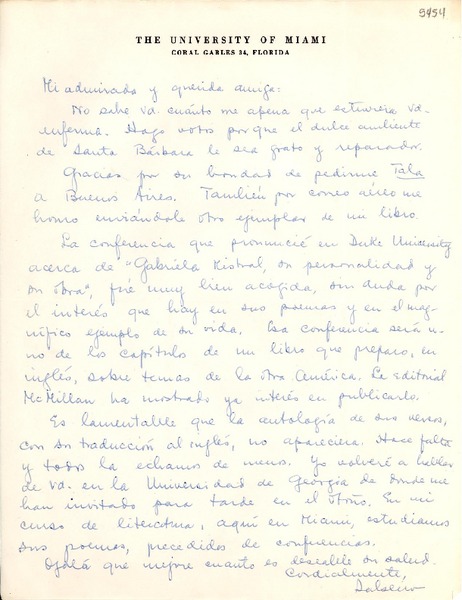 5454
THE UNIVERSITY OF MIAMI
CORAL GABLES 34, FLORIDA
Mi admirada y querida amiga:
No sabe Vd. cuánto me apena que estuviera Vd.
enferma. Hago votos porque el dulce ambiente
de Santa Bárbara le sea grato y reparador.
Gracias por su bondad de pedirme Tala
a Buenos Aires. También por correo aéreo me
honro enviándole otro ejemplar de mi libro.
La conferencia que pronuncié en Duke University
acerca de "Gabriela Mistral, su personalidad y
su obra", fué muy bien acogida, sin duda por
el interés que hay en sus poemas y en el mag-
nífico ejemplo de su vida. Esa conferencia será u-
no de los capítulos de un libro que preparo, en
inglés, sobre temas de la otra América. La editorial
McMillan ha mostrado ya interés en publicarlo.
Es lamentable que la antología de sus versos,
con su traducción al inglés, no apareciera. Hace falta
y todos la echamos de menos. Yo volveré a hablar
de Vd. en la Universidad de Georgia de donde me
han invitado para tarde en el otoño. En mi
curso de literatura, aquí en Miami, estudiamos
sus poemas, precedidos de conferencias.
Ojalá que mejore cuanto es deseable su salud.
Cordialmente,